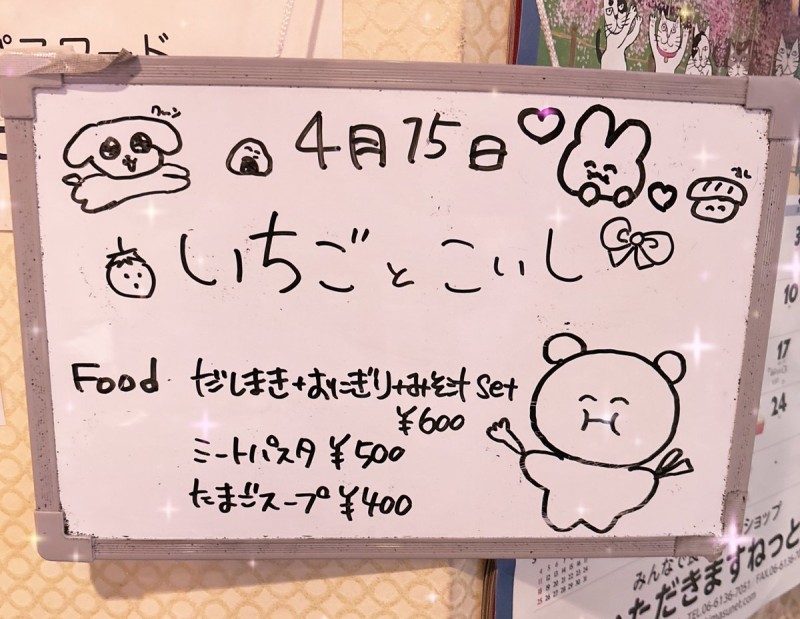 パスワード
ワーン
4月15日
いちごとこいし
Food だしまき+おにぎり+みそ汁 set
¥600
ミートパスタ ¥500
たまごスープ ¥400
10
17
24
ショップ
みんなで
いただきますねっと
TEL06-6136-7051/FAX06-613